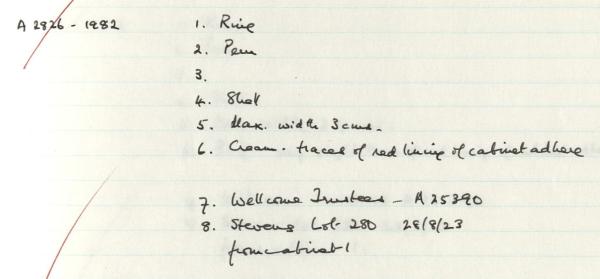 A 2826 - 1982
1. Ring
2. Peru
3.
4. Shell
5. Max. width 3 cms.
6. Cream. traces of red lining of cabinet adhere
7. Wellcome Trustees - A 25390
8. Stevens Lot 280 28/8/23
from cabinet 1